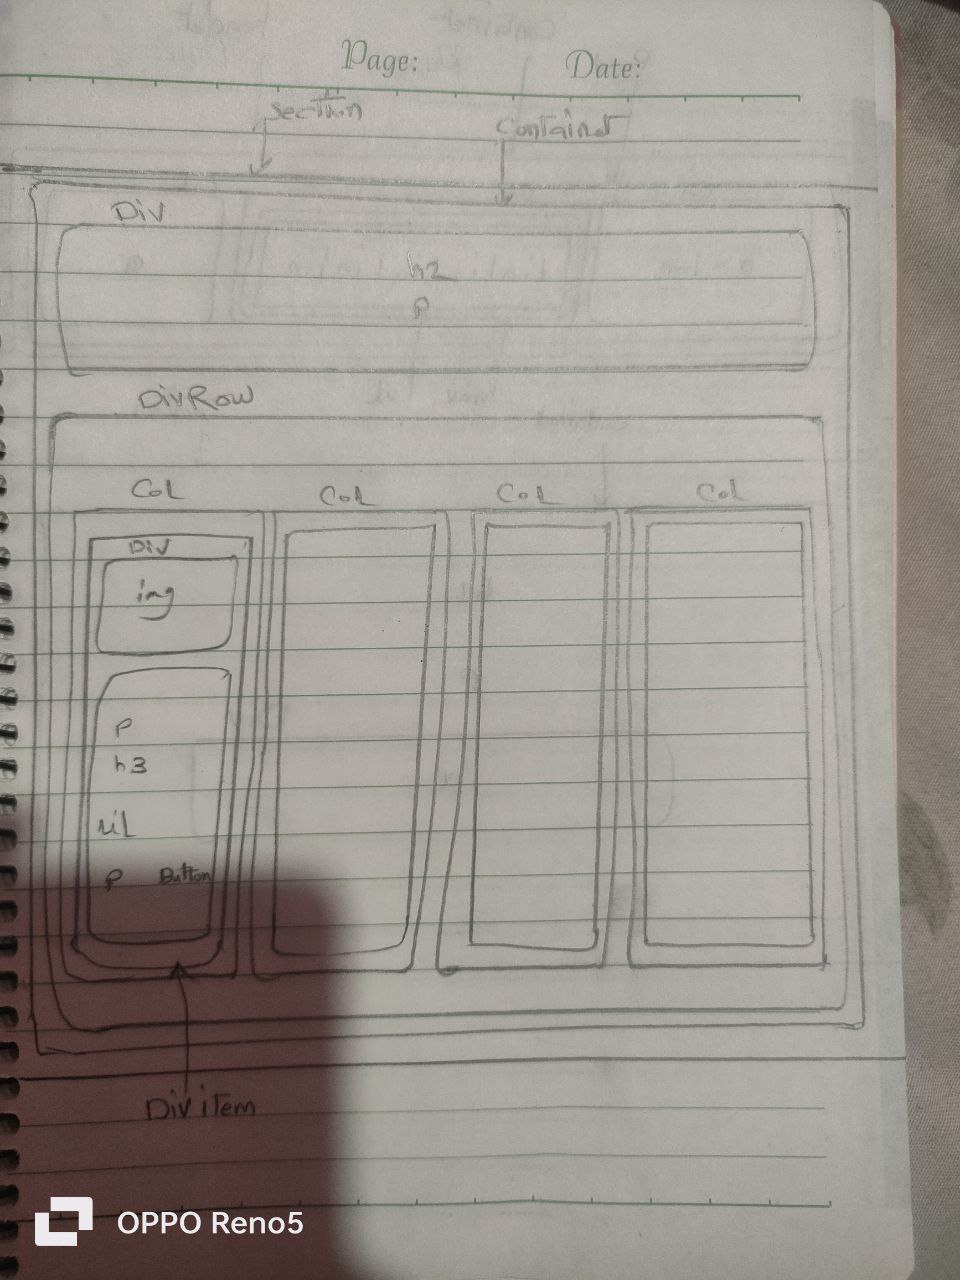 Page: Date:
section
Container
Div
h2
P
Div Row
Col Col Col Col
Div
img
P
h3
ul
P Button
Div item
OPPO Reno5